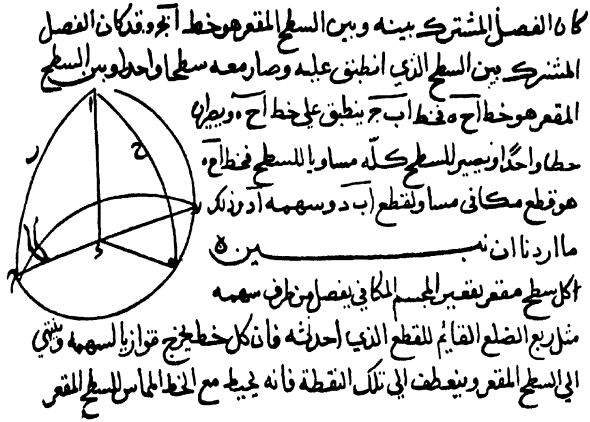 كان الفصل المشترك بينه وبين السطح المقعر هو خط ا ب ج وقد كان الفصل
المشترك بين السطح الذي انطبق عليه وصار معه سطحا واحدا وبين السطح
المقعر هو خط ا ح ه فخط ا ب ج ينطبق على خط ا ح ه ويصيران
خطا واحدا ويصير للسطح كله مساويا للسطح فخط ا ح ه
هو قطع مكافي مساو لقطع ا ب د وسهمه ا د وذلك
ما اردنا ان نبين ه
ا كل سطح مقعر بقعير المجسم المكافي يفصل من طرف سهمه
مثل ربع الضلع القايم للقطع الذي احدثه فان كل خط يخرج موازيا لسهمه وينتهي
الي السطح المقعر وينعطف الي تلك النقطة فانه يحيط مع الخط المماس للسطح المقعر
ا
ر
ح
ب
د
ج
ه